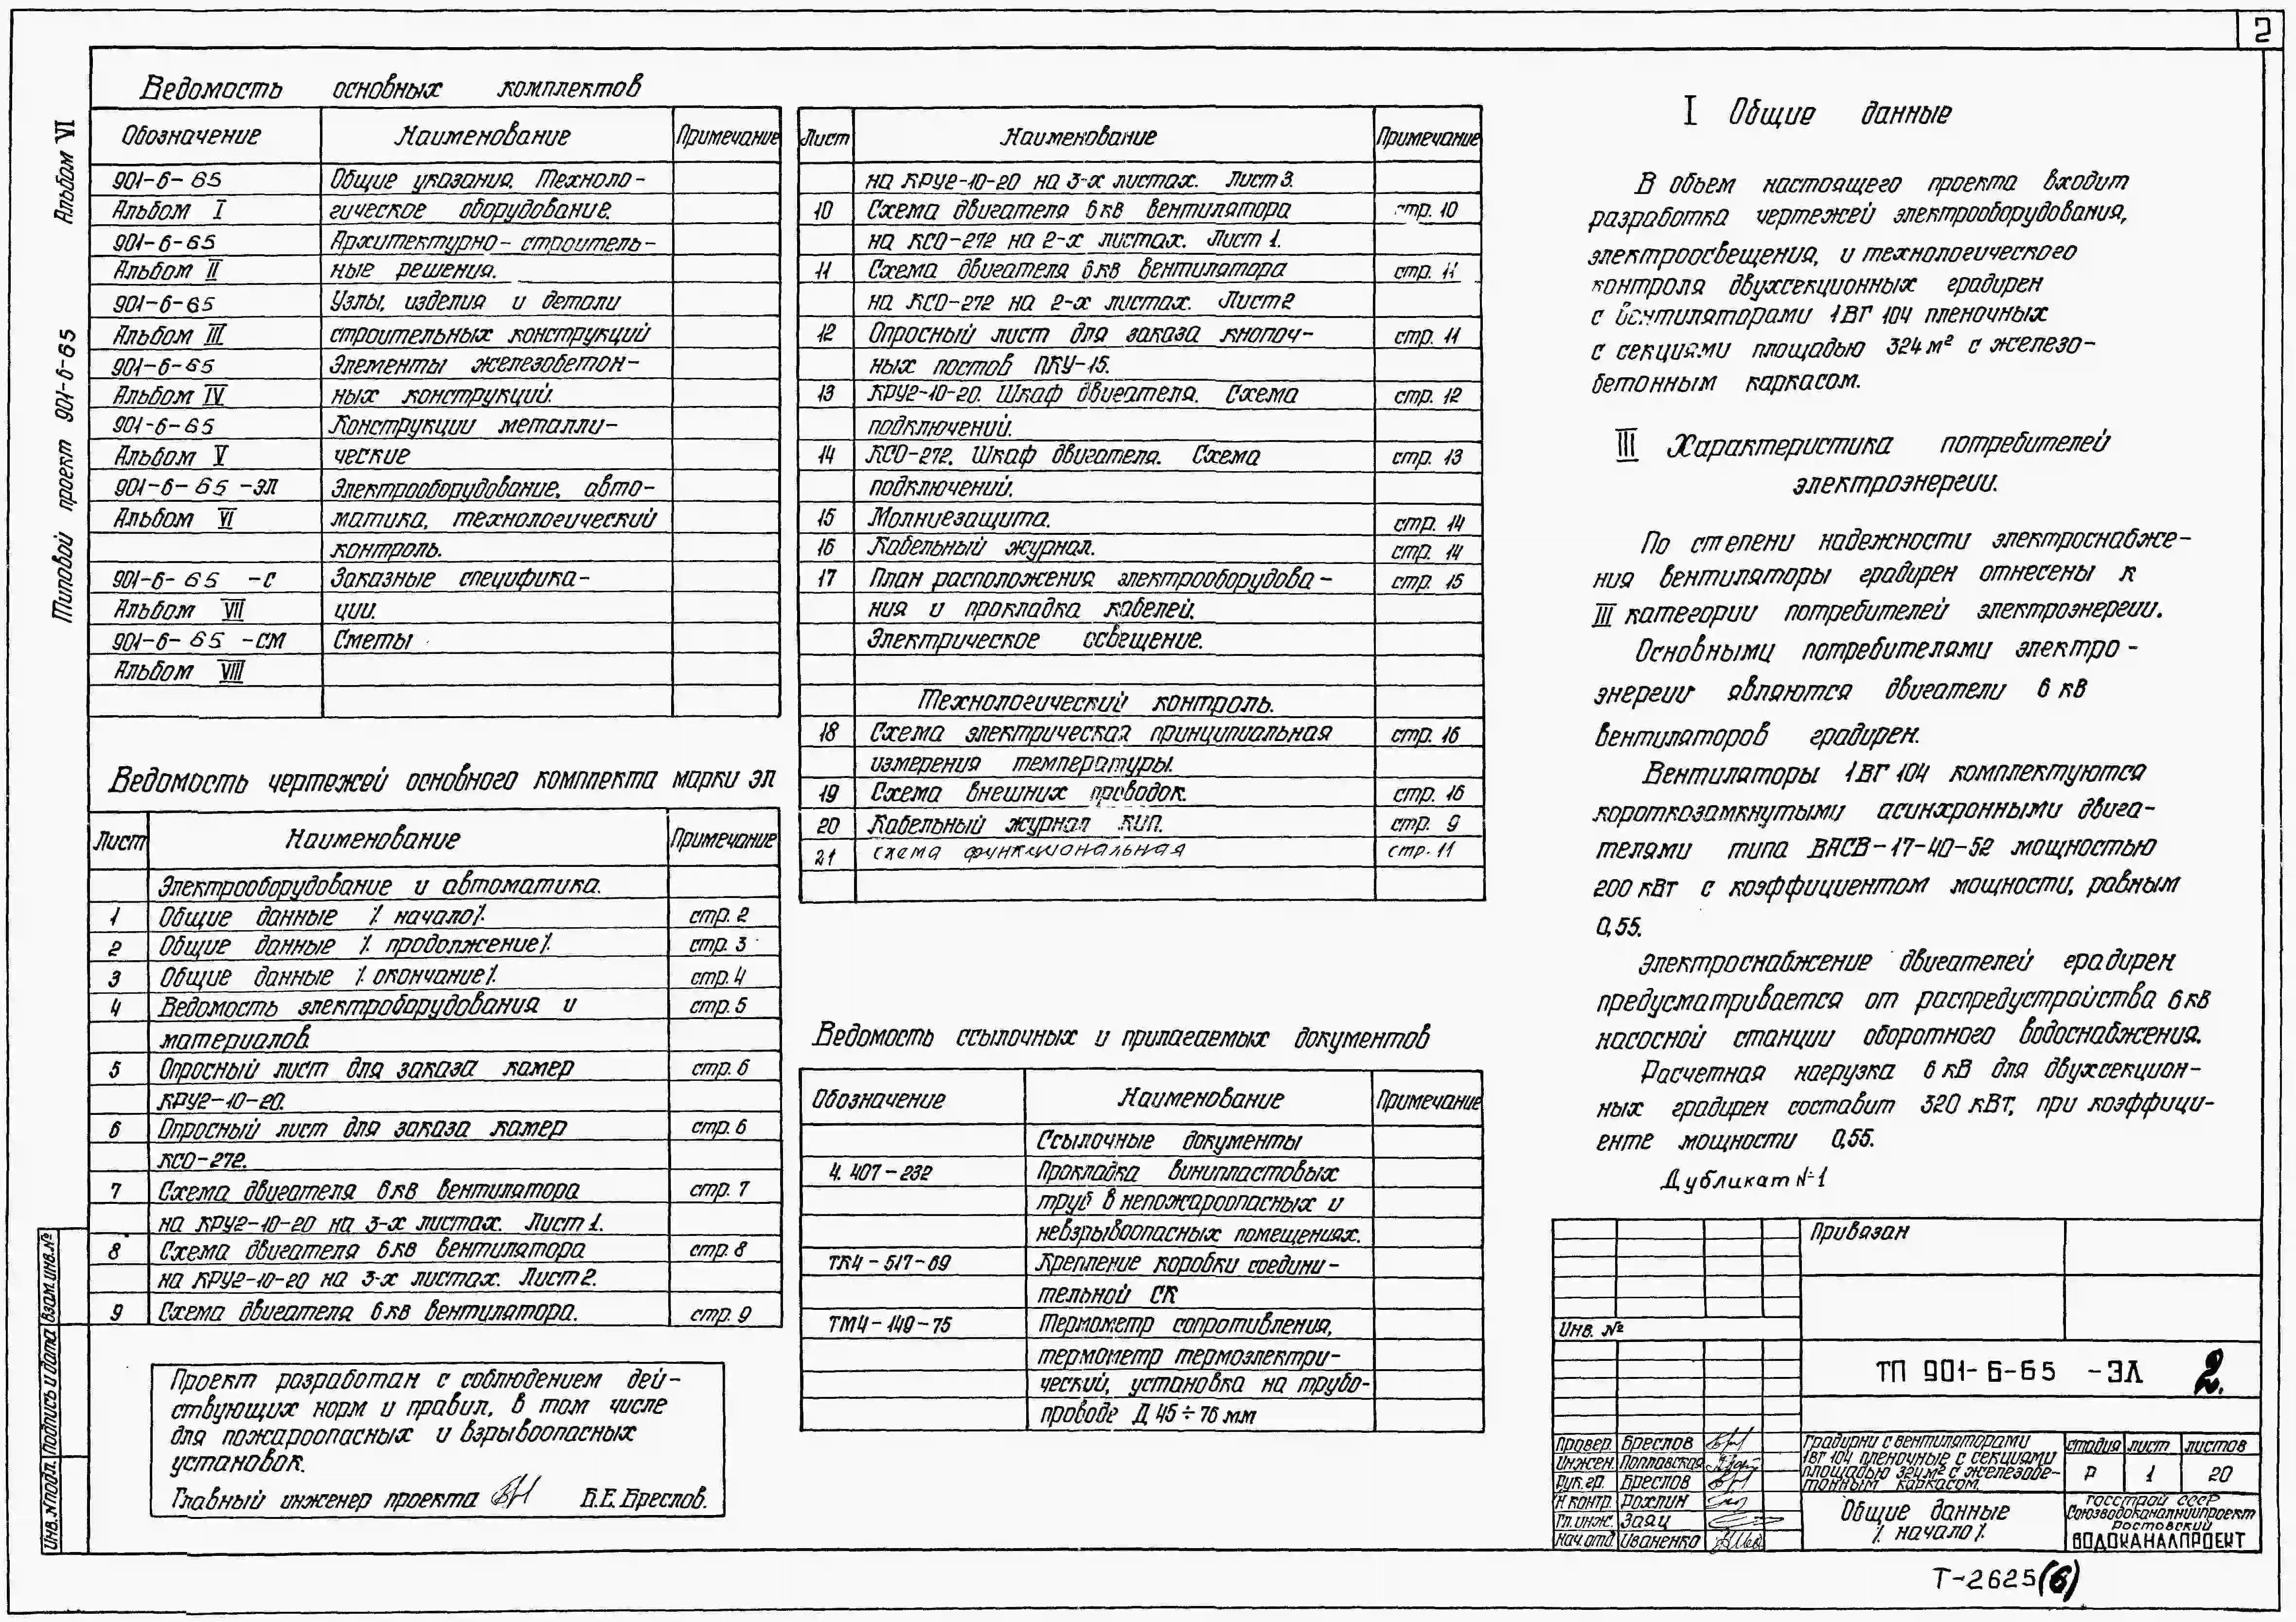 2
Альбом VI
Типовой проект 901-6-65
Ведомость основных комплектов
Обозначение Наименование Примечание
901-6-65 Общие указания. Техноло-
Альбом I гическое оборудование.
901-6-65 Архитектурно-строитель-
Альбом II ные решения.
901-6-65 Узлы, изделия и детали
Альбом III строительных конструкций
901-6-65 Элементы железобетон-
Альбом IV ных конструкций.
901-6-65 Конструкции металли-
Альбом V ческие
901-6-65 -ЭЛ Электрооборудование, авто-
Альбом VI матика, технологический
контроль.
901-6-65 -С Заказные специфика-
Альбом VII ции.
901-6-65 -СМ Сметы
Альбом VIII
Ведомость чертежей основного комплекта марки ЭЛ
Лист Наименование Примечание
Электрооборудование и автоматика.
1 Общие данные /. начало/. стр. 2
2 Общие данные /. продолжение/. стр. 3
3 Общие данные /. окончание/. стр. 4
4 Ведомость электроборудования и стр. 5
материалов
5 Опросный лист для заказа камер стр. 6
КРУ2-10-20.
6 Опросный лист для заказа камер стр. 6
КСО-272.
7 Схема двигателя 6кв вентилятора стр. 7
на КРУ2-10-20 на 3-х листах. Лист 1.
8 Схема двигателя 6кв вентилятора стр. 8
на КРУ2-10-20 на 3-х листах. Лист 2.
9 Схема двигателя 6кв вентилятора. стр. 9
Проект разработан с соблюдением дей-
ствующих норм и правил, в том числе
для пожароопасных и взрывоопасных
установок.
Главный инженер проекта Б.Е. Бреслов.
Лист Наименование Примечание
на КРУ2-10-20 на 3-х листах. Лист 3.
10 Схема двигателя 6кв вентилятора стр. 10
на КСО-272 на 2-х листах. Лист 1.
11 Схема двигателя 6кв вентилятора стр. 11
на КСО-272 на 2-х листах. Лист 2
12 Опросный лист для заказа кнопоч- стр. 11
ных постов ПКУ-15.
13 КРУ2-10-20. Шкаф двигателя. Схема стр. 12
подключений.
14 КСО-272. Шкаф двигателя. Схема стр. 13
подключений.
15 Молниезащита. стр. 14
16 Кабельный журнал. стр. 14
17 План расположения электрооборудова- стр. 15
ния и прокладка кабелей.
Электрическое освещение.
Технологический контроль.
18 Схема электрическая принципиальная стр. 16
измерения температуры.
19 Схема внешних проводок. стр. 16
20 Кабельный журнал КИП. стр. 9
21 схема функциональная стр. 11
Ведомость ссылочных и прилагаемых документов
Обозначение Наименование Примечание
Ссылочные документы
4.407-232 Прокладка винипластовых
труб в непожароопасных и
невзрывоопасных помещениях.
ТК4-517-69 Крепление коробки соедини-
тельной СК
ТМ4-149-75 Термометр сопротивления,
термометр термоэлектри-
ческий, установка на трубо-
проводе Д 45÷76 мм
I Общие данные
В объем настоящего проекта входит
разработка чертежей электрооборудования,
электроосвещения, и технологического
контроля двухсекционных градирен
с вентиляторами 1ВГ 104 пленочных
с секциями площадью 324 м² с железо-
бетонным каркасом.
III Характеристика потребителей
электроэнергии.
По степени надежности электроснабже-
ния вентиляторы градирен отнесены к
III категории потребителей электроэнергии.
Основными потребителями электро-
энергии являются двигатели 6 кв
вентиляторов градирен.
Вентиляторы 1ВГ 104 комплектуются
короткозамкнутыми асинхронными двига-
телями типа ВАСВ-17-40-52 мощностью
200 кВт с коэффициентом мощности, равным
0,55.
Электроснабжение двигателей градирен
предусматривается от распредустройства 6кв
насосной станции оборотного водоснабжения.
Расчетная нагрузка 6 кВ для двухсекцион-
ных градирен составит 320 кВт, при коэффици-
енте мощности 0,55.
Дубликат №1
Привязан
Инв. №
ТП 901-6-65 -ЭЛ 2.
Провер. Бреслов
Инжен. Поплавская
Рук. гр. Бреслов
Н. контр. Рохлин
Гл. инж. Заяц
Нач. отд. Иваненко
Градирни с вентиляторами
1ВГ 104 пленочные с секциями
площадью 324 м² с железобе-
тонным каркасом.
стадия лист листов
Р 1 20
Общие данные
/. начало/.
Госстрой СССР
Союзводоканалниипроект
Ростовский
ВОДОКАНАЛПРОЕКТ
Инв. № подл. Подпись и дата Взам. инв. №
Т-2625 (6)